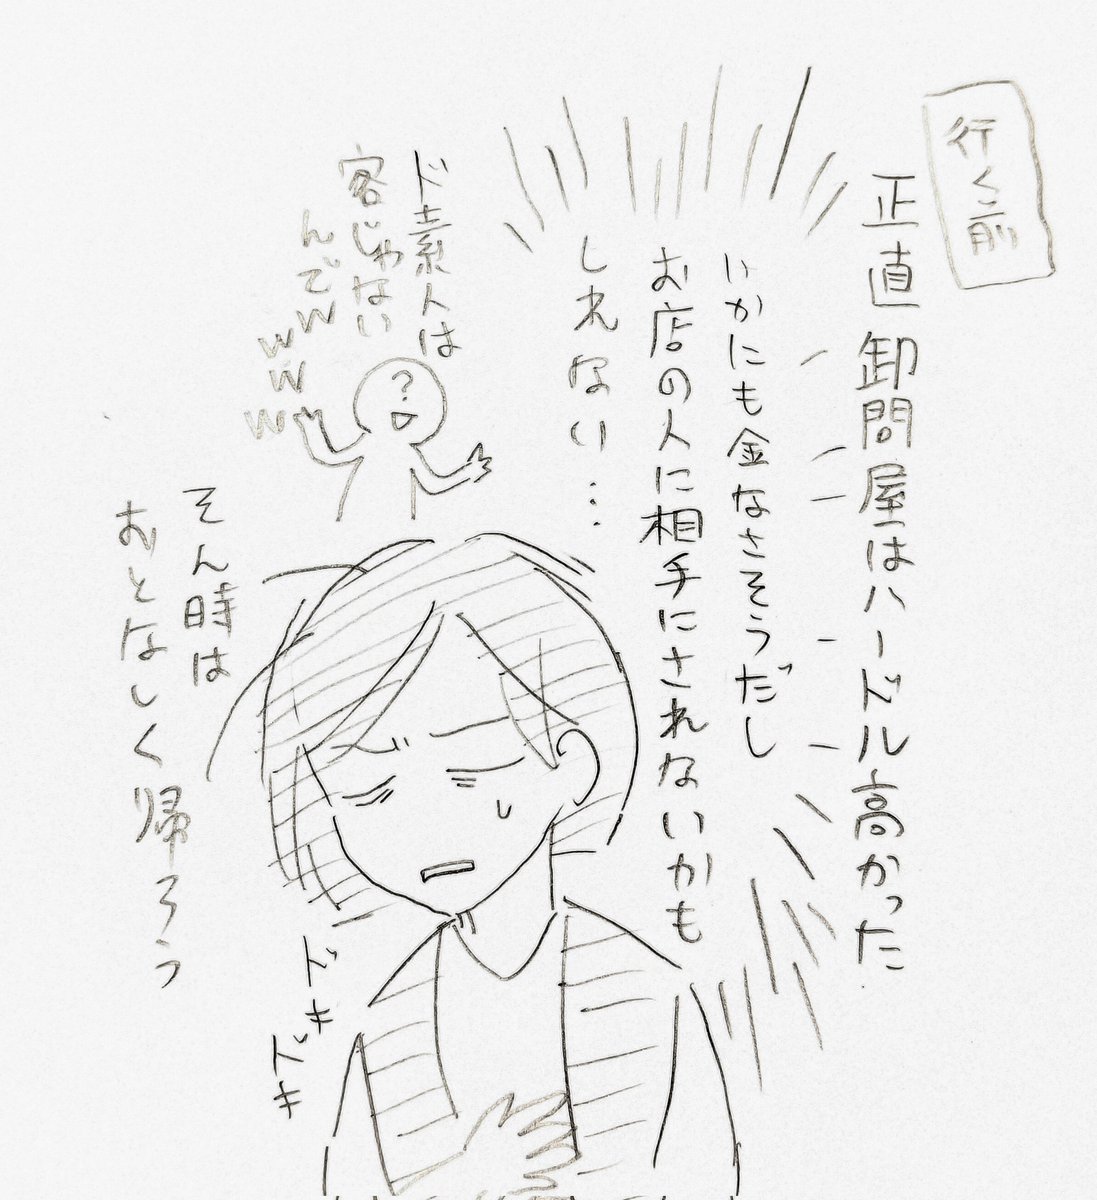 行く前
正直 卸問屋はハードル高かった
いかにも金なさそうだし
お店の人に相手にされないかも
しれない…
ド素人は
客じゃない
んでw
www
そん時は
おとなしく帰ろう
ドキ
ドキ